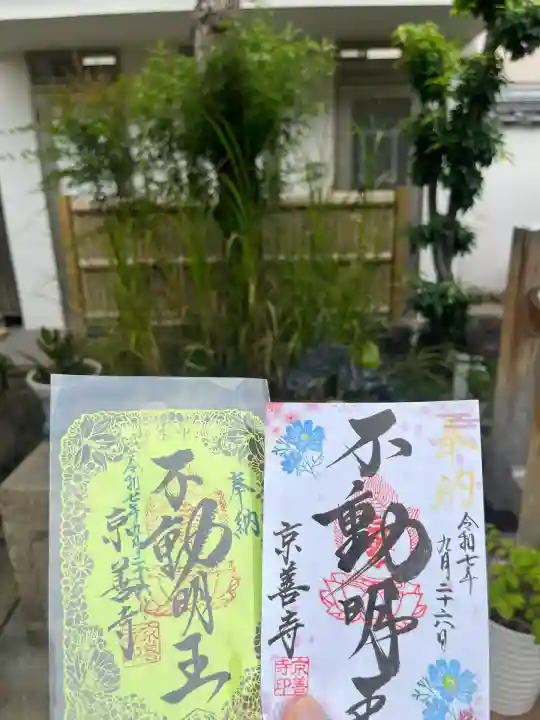 奉納
不動明王
京善寺
奉納
令和七年
九月二十六日
不動明王
京善寺
京善
寺印